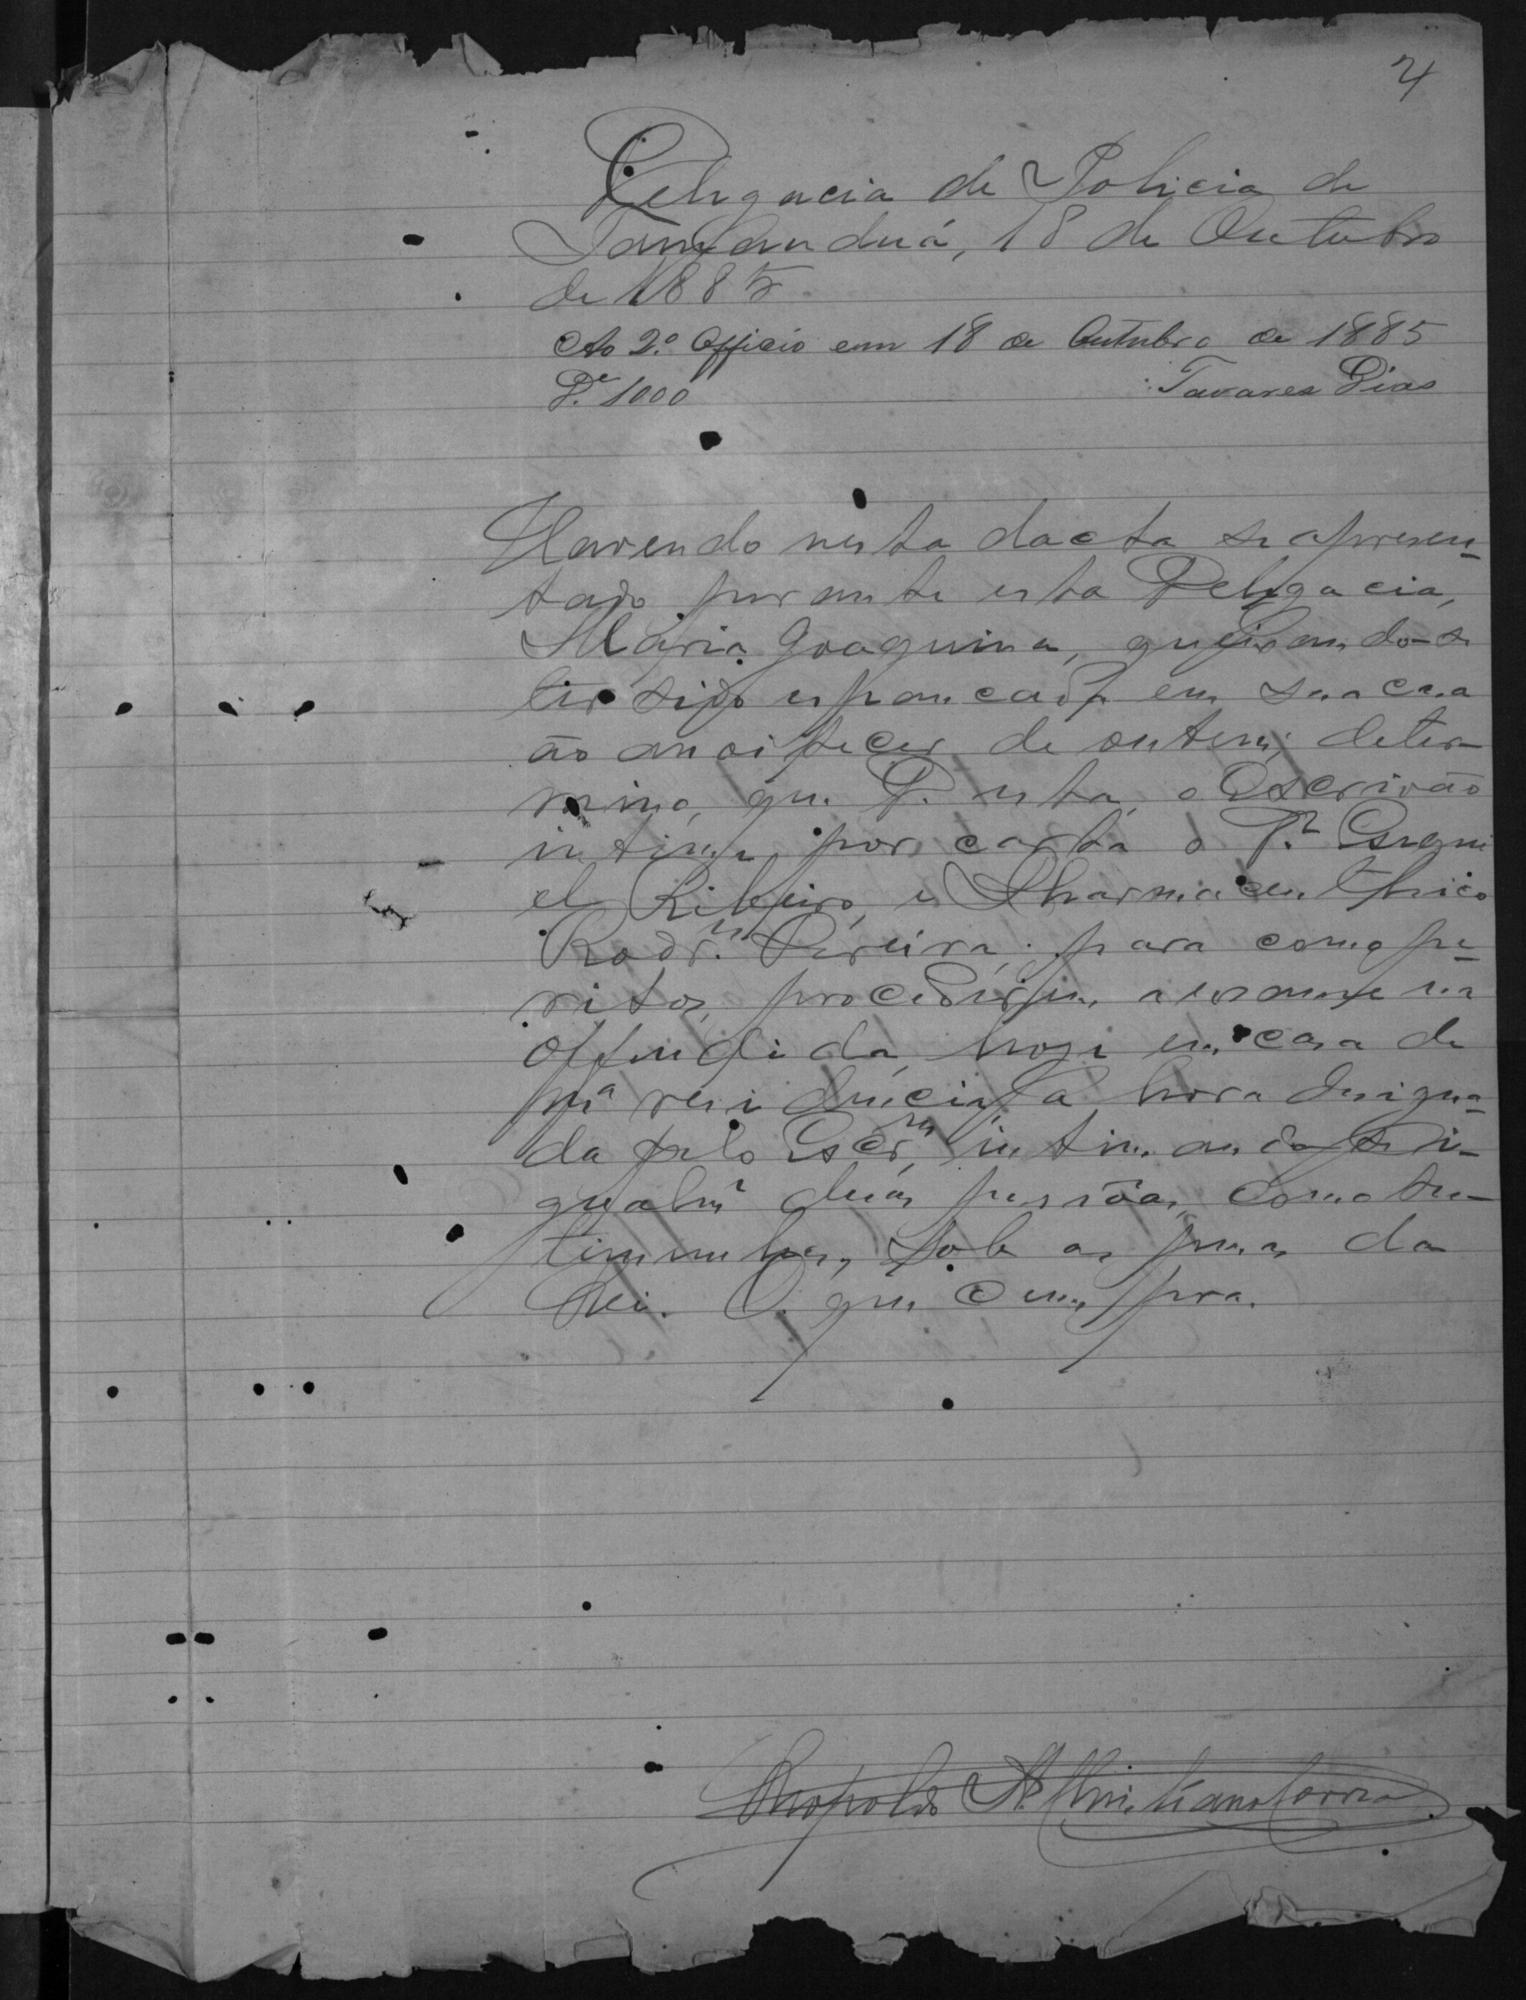 4
Delegacia de Policia de
Tamanduá, 18 de Outubro
de 1885.
Ao 2.º Officio em 18 de Outubro de 1885
D.e 1000 Tavares Dias
Havendo nesta dacta se apresen-
tado perante esta Delegacia,
Maria Joaquina, queixando-se
ter sido espancada em sua casa
ao anoitecer de ontem; deter-
mino, que D. esta, o Escrivão
intime por carta o Dr
el Ribeiro, e Pharmaceuthico
Rodr.es Pereira, para como pe-
ritos, procederem a exame na
offendida, hoje em casa de
m.a residencia, a hora designa-
da pelo Escr.m, intimando-se i-
gualm.e duas pessôas, como tes-
timunhas, sob as penas da
Lei. O que cumpra.
Leopoldo A. Christiano Correa